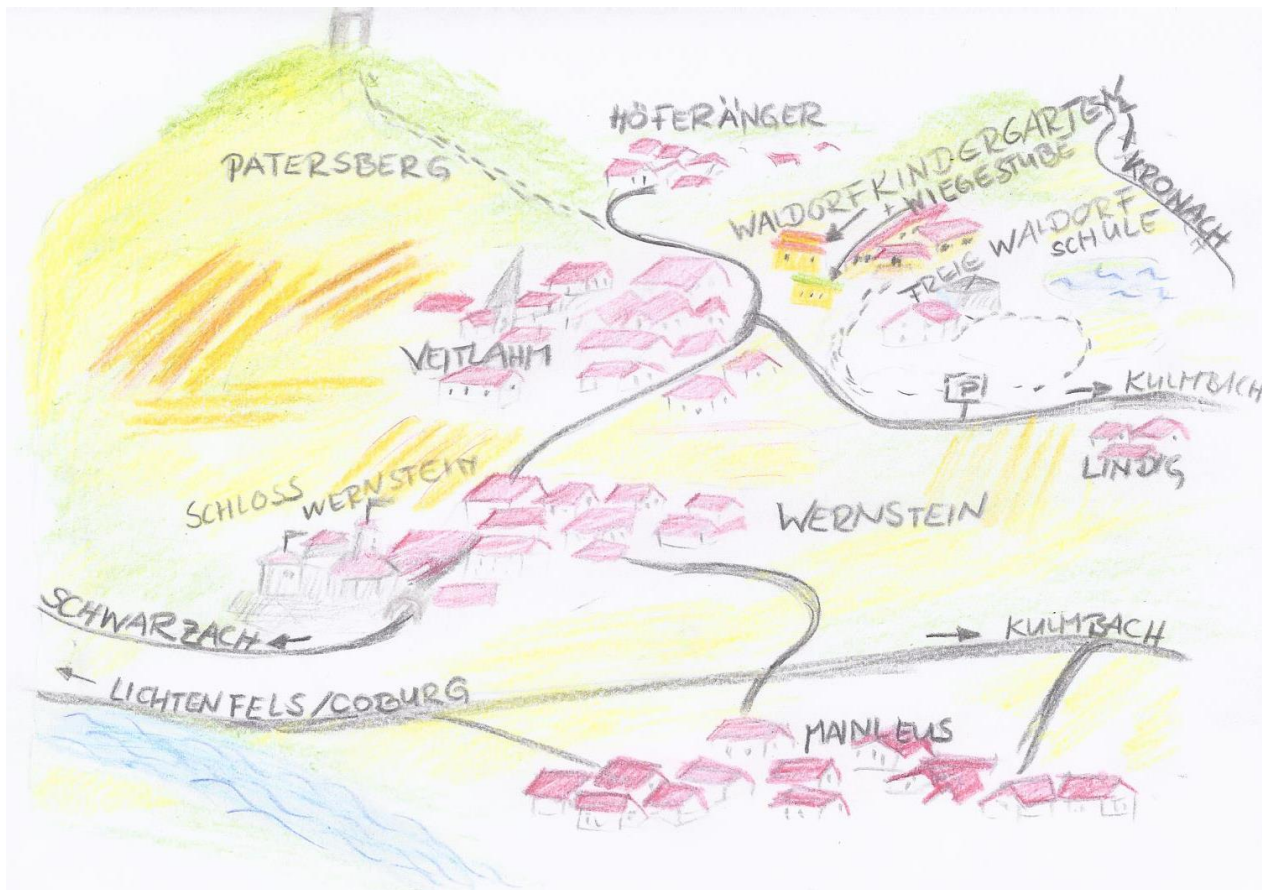 HÖFERÄNGER
PATERSBERG
WALDORFKINDERGARTEN
+ WIEGESTUBE
KRONACH
FREIE WALDORF
SCHULE
VEITLAHM
P
KULMBACH
LINDIG
SCHLOSS WERNSTEIN
WERNSTEIN
SCHWARZACH
KULMBACH
LICHTENFELS/COBURG
MAINLEUS